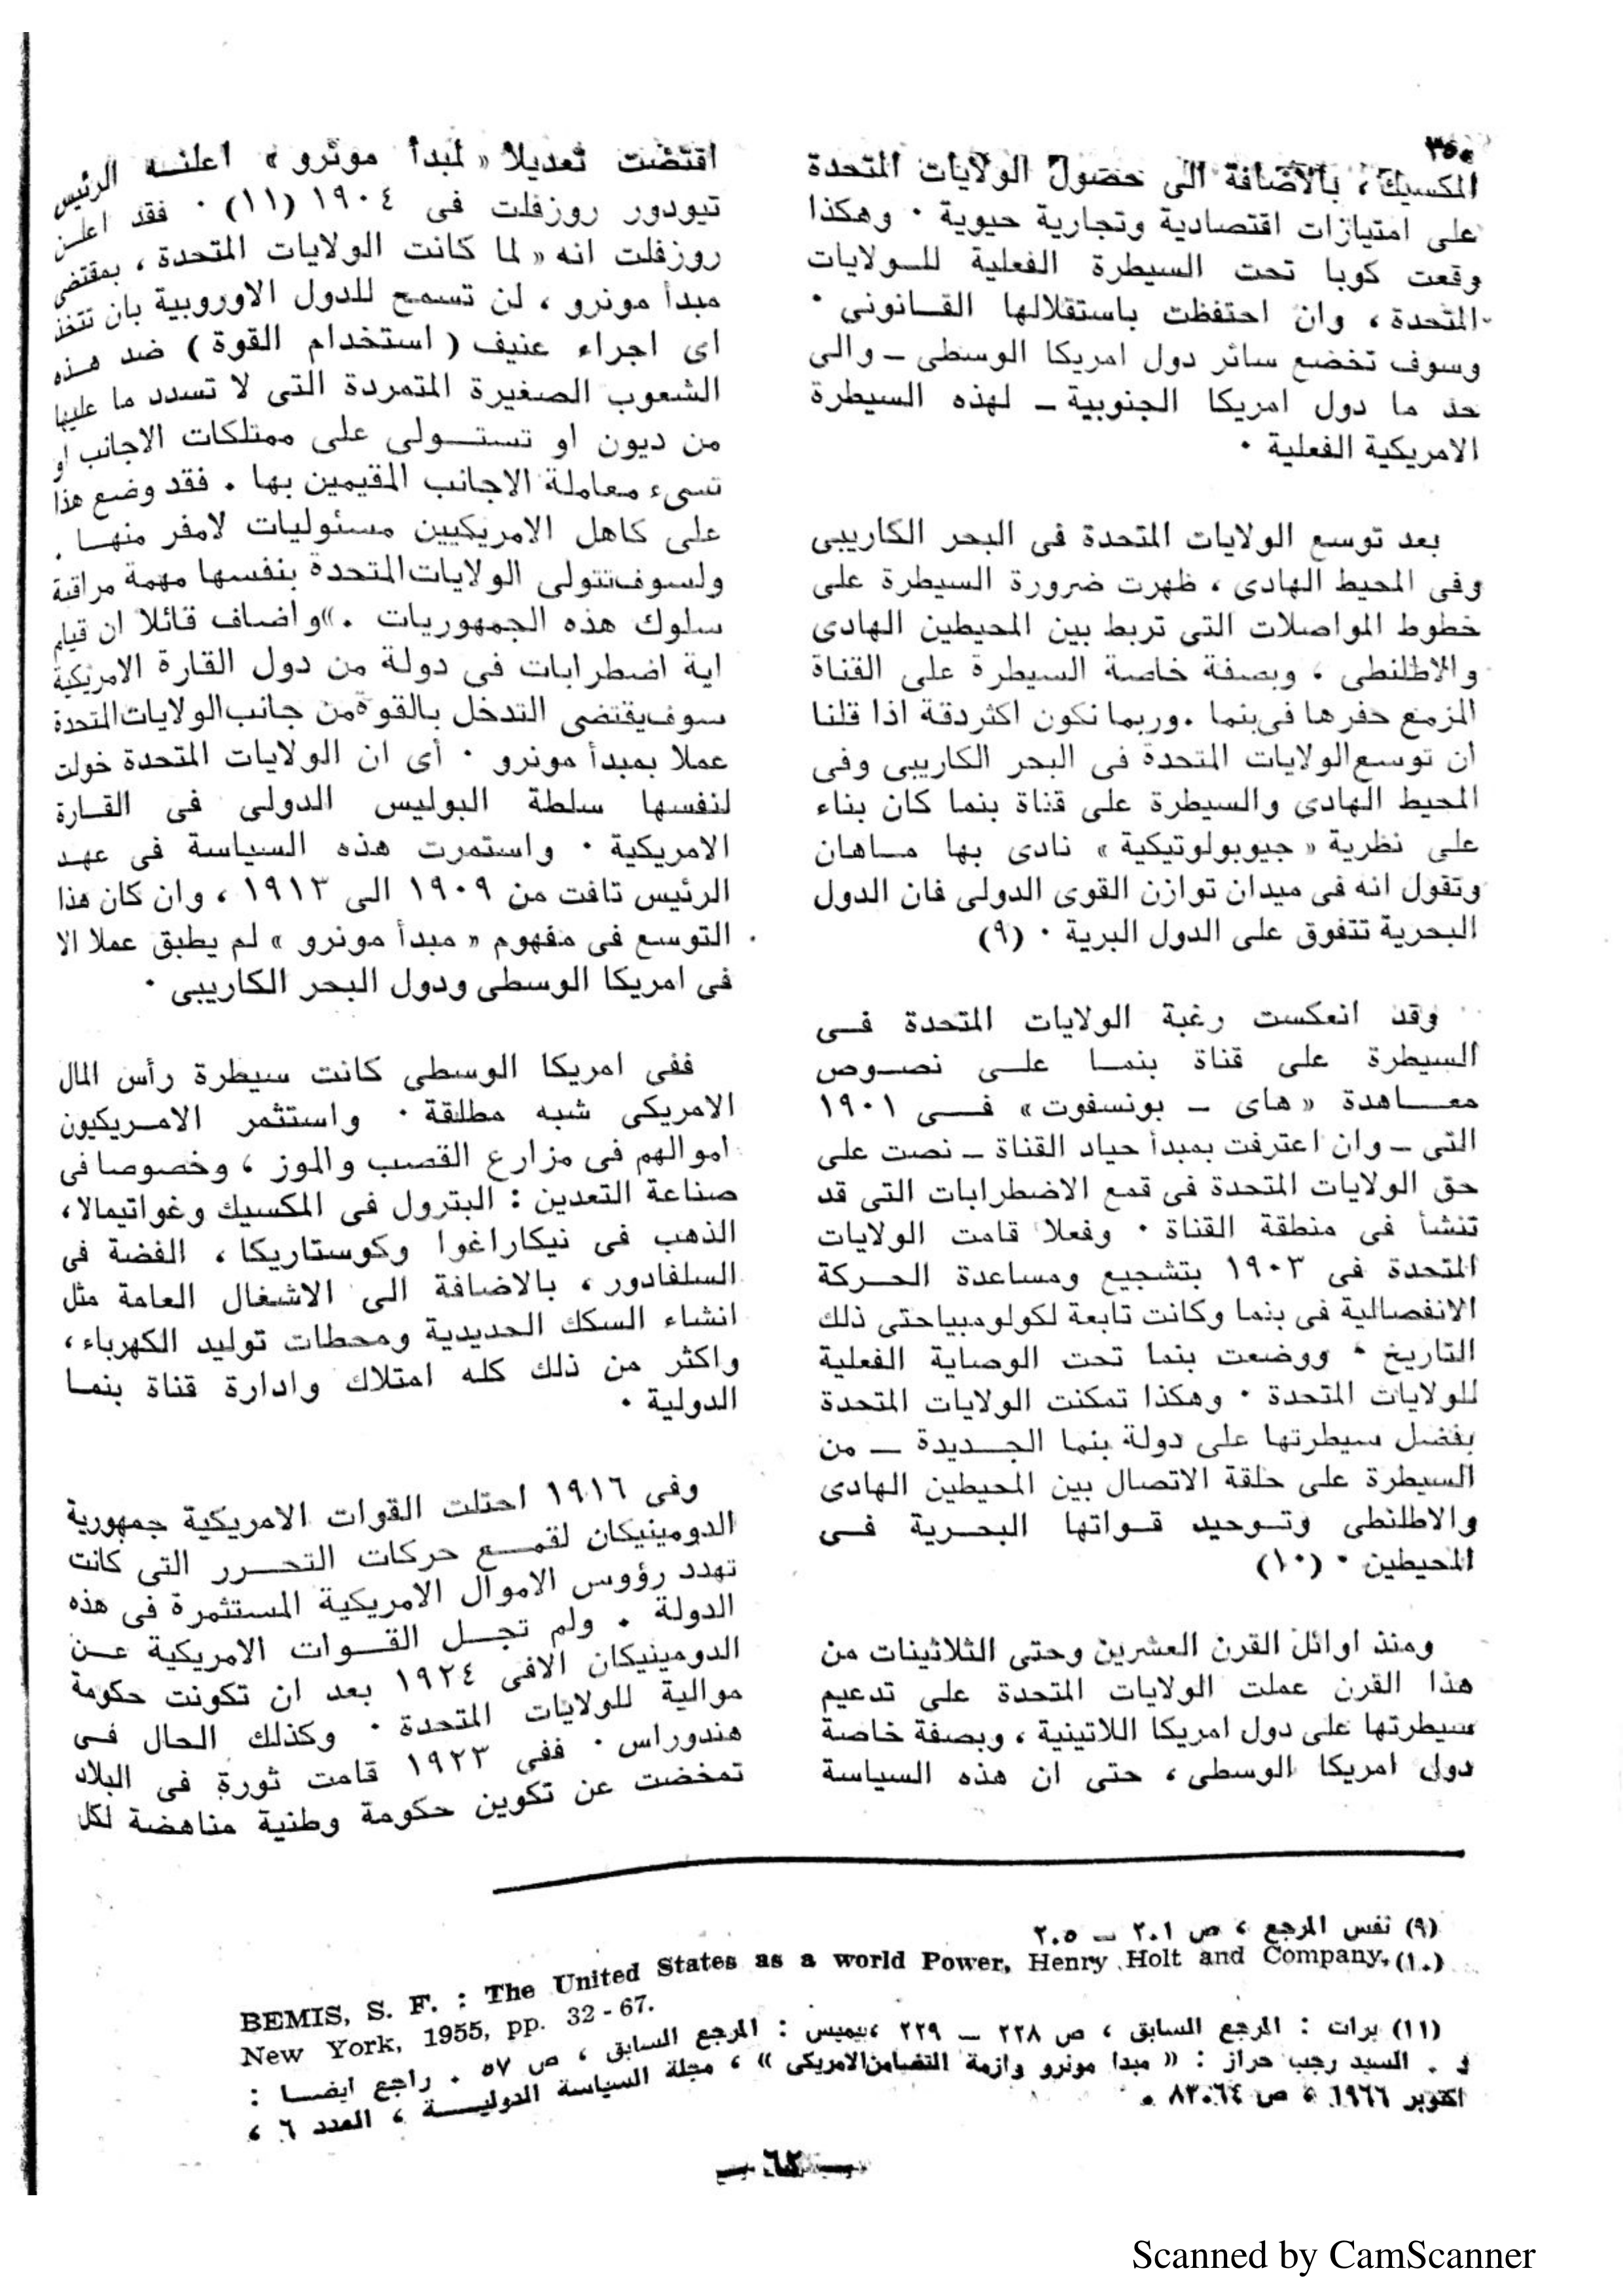 ٣٥٠
المكسيك ، بالاضافة الى حصول الولايات المتحدة
على امتيازات اقتصادية وتجارية حيوية ٠ وهكذا
وقعت كوبا تحت السيطرة الفعلية للـولايات
المتحدة ، وان احتفظت باستقلالها القـانونى ٠
وسوف تخضع سائر دول امريكا الوسطى ـ والى
حد ما دول امريكا الجنوبية ـ لهذه السيطرة
الامريكية الفعلية ٠
بعد توسع الولايات المتحدة فى البحر الكاريبى
وفى المحيط الهادى ، ظهرت ضرورة السيطرة على
خطوط المواصلات التى تربط بين المحيطين الهادى
والاطلنطى ، وبصفة خاصة السيطرة على القناة
المزمع حفرها فى بنما ٠ وربما نكون اكثر دقة اذا قلنا
ان توسع الولايات المتحدة فى البحر الكاريبى وفى
المحيط الهادى والسيطرة على قناة بنما كان بناء
على نظرية « جيوبولوتيكية » نادى بها مـاهان
وتقول انه فى ميدان توازن القوى الدولى فان الدول
البحرية تتفوق على الدول البرية ٠ (٩)
وقد انعكست رغبة الولايات المتحدة فـى
السيطرة على قناة بنمـا علـى نصـوص
معـاهدة « هاى ـ بونسفوت » فـى ١٩٠١
التى ـ وان اعترفت بمبدأ حياد القناة ـ نصت على
حق الولايات المتحدة فى قمع الاضطرابات التى قد
تنشأ فى منطقة القناة ٠ وفعلا قامت الولايات
المتحدة فى ١٩٠٣ بتشجيع ومساعدة الحـركة
الانفصالية فى بنما وكانت تابعة لكولومبيا حتى ذلك
التاريخ ٠ ووضعت بنما تحت الوصاية الفعلية
للولايات المتحدة ٠ وهكذا تمكنت الولايات المتحدة
بفضل سيطرتها على دولة بنما الجـديدة ـ من
السيطرة على حلقة الاتصال بين المحيطين الهادى
والاطلنطى وتـوحيد قـواتها البحـرية فـى
المحيطين ٠ (١٠)
ومنذ اوائل القرن العشرين وحتى الثلاثينات من
هذا القرن عملت الولايات المتحدة على تدعيم
سيطرتها على دول امريكا اللاتينية ، وبصفة خاصة
دول امريكا الوسطى ، حتى ان هذه السياسة
اقتضت تعديلا « لمبدأ مونرو » اعلنـه الرئيس
تيودور روزفلت فى ١٩٠٤ (١١) ٠ فقد اعلـن
روزفلت انه « لما كانت الولايات المتحدة ، بمقتضى
مبدأ مونرو ، لن تسمح للدول الاوروبية بان تتخذ
اى اجراء عنيف ( استخدام القوة ) ضد هـذه
الشعوب الصغيرة المتمردة التى لا تسدد ما عليها
من ديون او تستـولى على ممتلكات الاجانب او
تسىء معاملة الاجانب المقيمين بها ٠ فقد وضع هذا
على كاهل الامريكيين مسئوليات لامفر منهـا ٠
ولسوف تتولى الولايات المتحدة بنفسها مهمة مراقبة
سلوك هذه الجمهوريات ٠ » واضاف قائلا ان قيام
اية اضطرابات فى دولة من دول القارة الامريكية
سوف يقتضى التدخل بالقوة من جانب الولايات المتحدة
عملا بمبدأ مونرو ٠ أى ان الولايات المتحدة خولت
لنفسها سلطة البوليس الدولى فى القـارة
الامريكية ٠ واستمرت هذه السياسة فى عهـد
الرئيس تافت من ١٩٠٩ الى ١٩١٣ ، وان كان هذا
التوسع فى مفهوم « مبدأ مونرو » لم يطبق عملا الا
فى امريكا الوسطى ودول البحر الكاريبى ٠
ففى امريكا الوسطى كانت سيطرة رأس المال
الامريكى شبه مطلقة ٠ واستثمر الامـريكيون
اموالهم فى مزارع القصب والموز ، وخصوصا فى
صناعة التعدين : البترول فى المكسيك وغواتيمالا ،
الذهب فى نيكاراغوا وكوستاريكا ، الفضة فى
السلفادور ، بالاضافة الى الاشغال العامة مثل
انشاء السكك الحديدية ومحطات توليد الكهرباء ،
واكثر من ذلك كله امتلاك وادارة قناة بنمـا
الدولية ٠
وفى ١٩١٦ احتلت القوات الامريكية جمهورية
الدومينيكان لقمـع حركات التحـرر التى كانت
تهدد رؤوس الاموال الامريكية المستثمرة فى هذه
الدولة ٠ ولم تجـل القـوات الامريكية عـن
الدومينيكان الا فى ١٩٢٤ بعد ان تكونت حكومة
موالية للولايات المتحدة ٠ وكذلك الحال فـى
هندوراس ٠ ففى ١٩٢٣ قامت ثورة فى البلاد
تمخضت عن تكوين حكومة وطنية مناهضة لكل
(٩) نفس المرجع ، ص ٢٠١ ـ ٢٠٥
(١٠) BEMIS, S. F. : The United States as a world Power, Henry Holt and Company,
New York, 1955, pp. 32 - 67.
(١١) برات : المرجع السابق ، ص ٢٢٨ ـ ٢٢٩ ، بيميس : المرجع السابق ، ص ٥٧ ٠ راجع ايضـا :
د ٠ السيد رجب حراز : « مبدا مونرو وازمة التضامن الامريكى » ، مجلة السياسة الدوليـة ، العدد ٦ ،
اكتوبر ١٩٦٦ ، ص ٦٤ـ٨٣ ٠
ـ ٦٢ ـ
Scanned by CamScanner